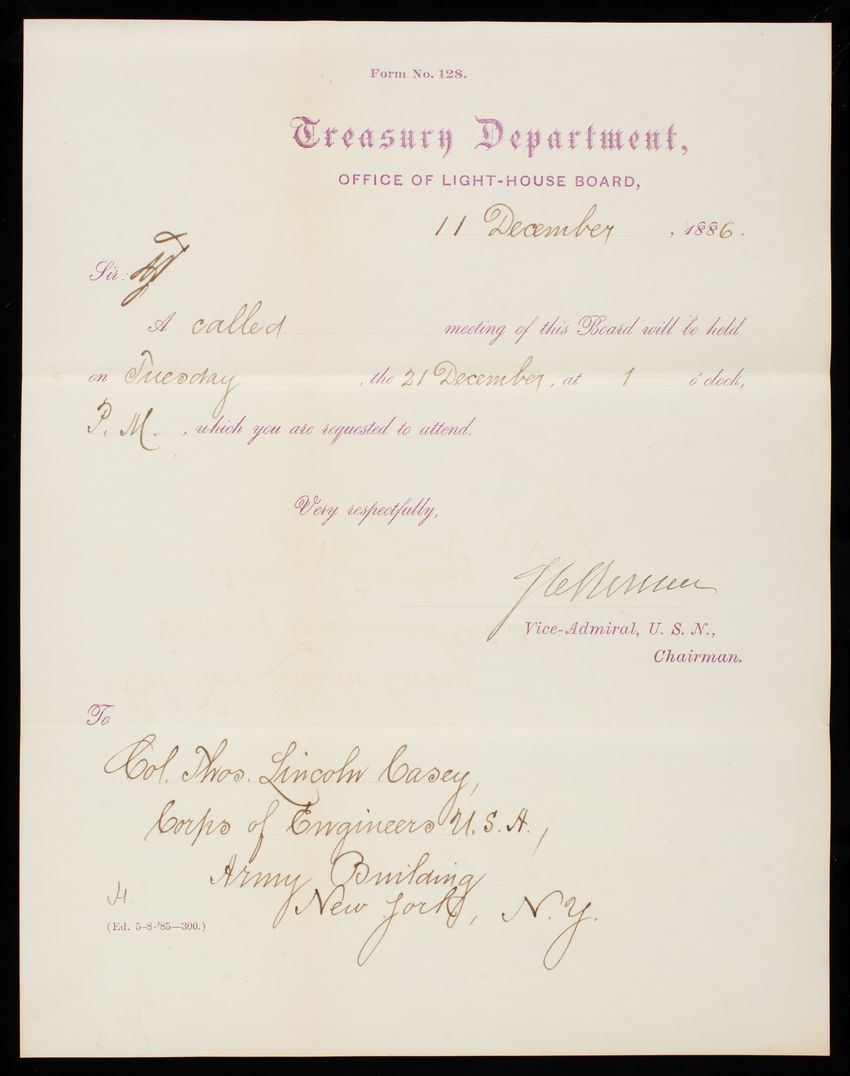 Form No. 128.
Treasury Department,
OFFICE OF LIGHT-HOUSE BOARD,
11 December, 1886.
Sir:
A called meeting of this Board will be held
on Tuesday, the 21 December, at 1 o'clock,
P. M., which you are requested to attend.
Very respectfully,
Vice-Admiral, U. S. N.,
Chairman.
To
Col. Thos. Lincoln Casey,
Corps of Engineers U.S.A.,
Army Building
New York, N.Y.
(Ed. 5-8-'85—300.)